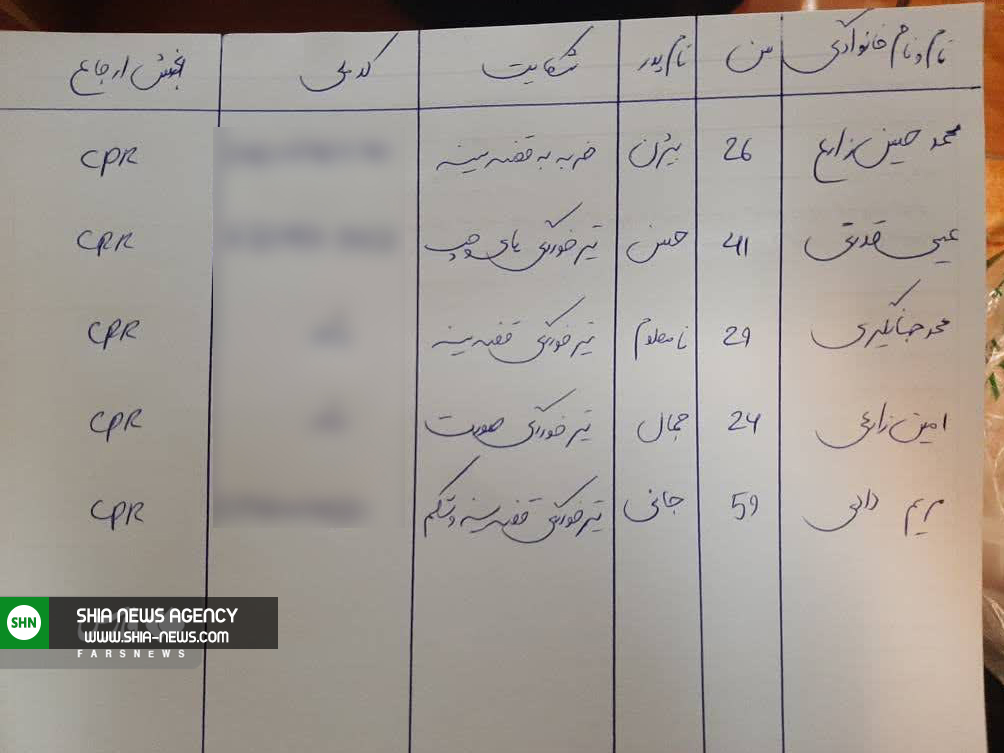 نام و نام خانوادگی سن نام پدر شکایت کد ملی بخش ارجاع
محمد حسین زارع 26 بیژن ضربه به قفسه سینه CPR
قدرتی 41 حسن تیرخوردگی پای چپ CPR
محمد جهانگیری 29 نامعلوم تیرخوردگی قفسه سینه CPR
امین زارعی 24 جمال تیرخوردگی صورت CPR
مریم 59 جانی تیرخوردگی قفسه سینه و شکم CPR
SHN
SHIA NEWS AGENCY
WWW.SHIA-NEWS.COM
FARSNEWS